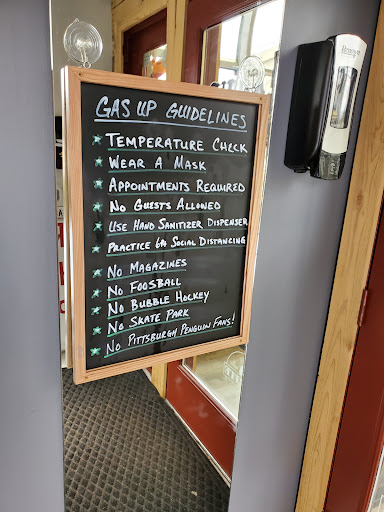 GAS UP GUIDELINES
TEMPERATURE CHECK
WEAR A MASK
APPOINTMENTS REQUIRED
NO GUESTS ALLOWED
USE HAND SANITIZER DISPENSER
PRACTICE 6FT SOCIAL DISTANCING
NO MAGAZINES
NO FOOSBALL
NO BUBBLE HOCKEY
NO SKATE PARK
NO PITTSBURGH PENGUIN FANS!